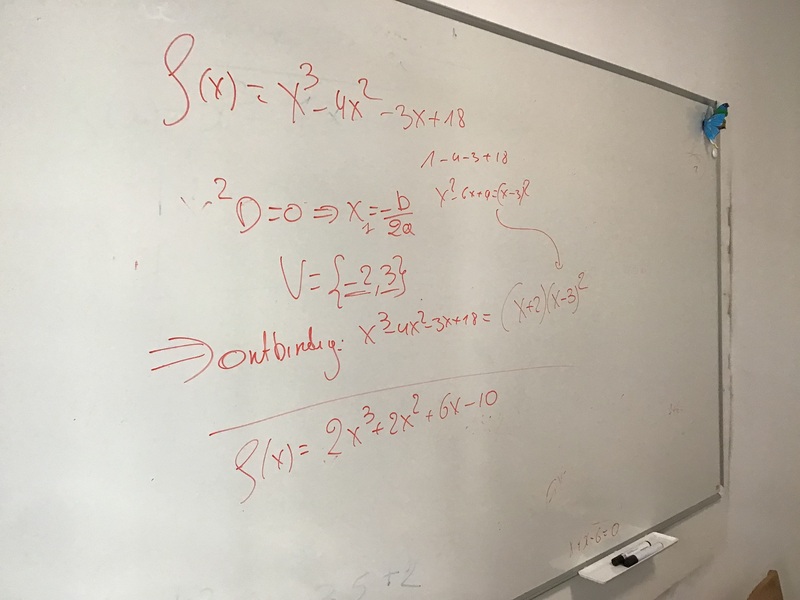 f(x) = x³ - 4x² - 3x + 18
1 - 4 - 3 + 18
x² - 6x + 9 = (x-3)²
D = 0 ⇒ x₁ = -b/2a
V = {-2, 3}
⇒ ontbinding: x³ - 4x² - 3x + 18 = (x+2)(x-3)²
f(x) = 2x³ + 2x² + 6x - 10